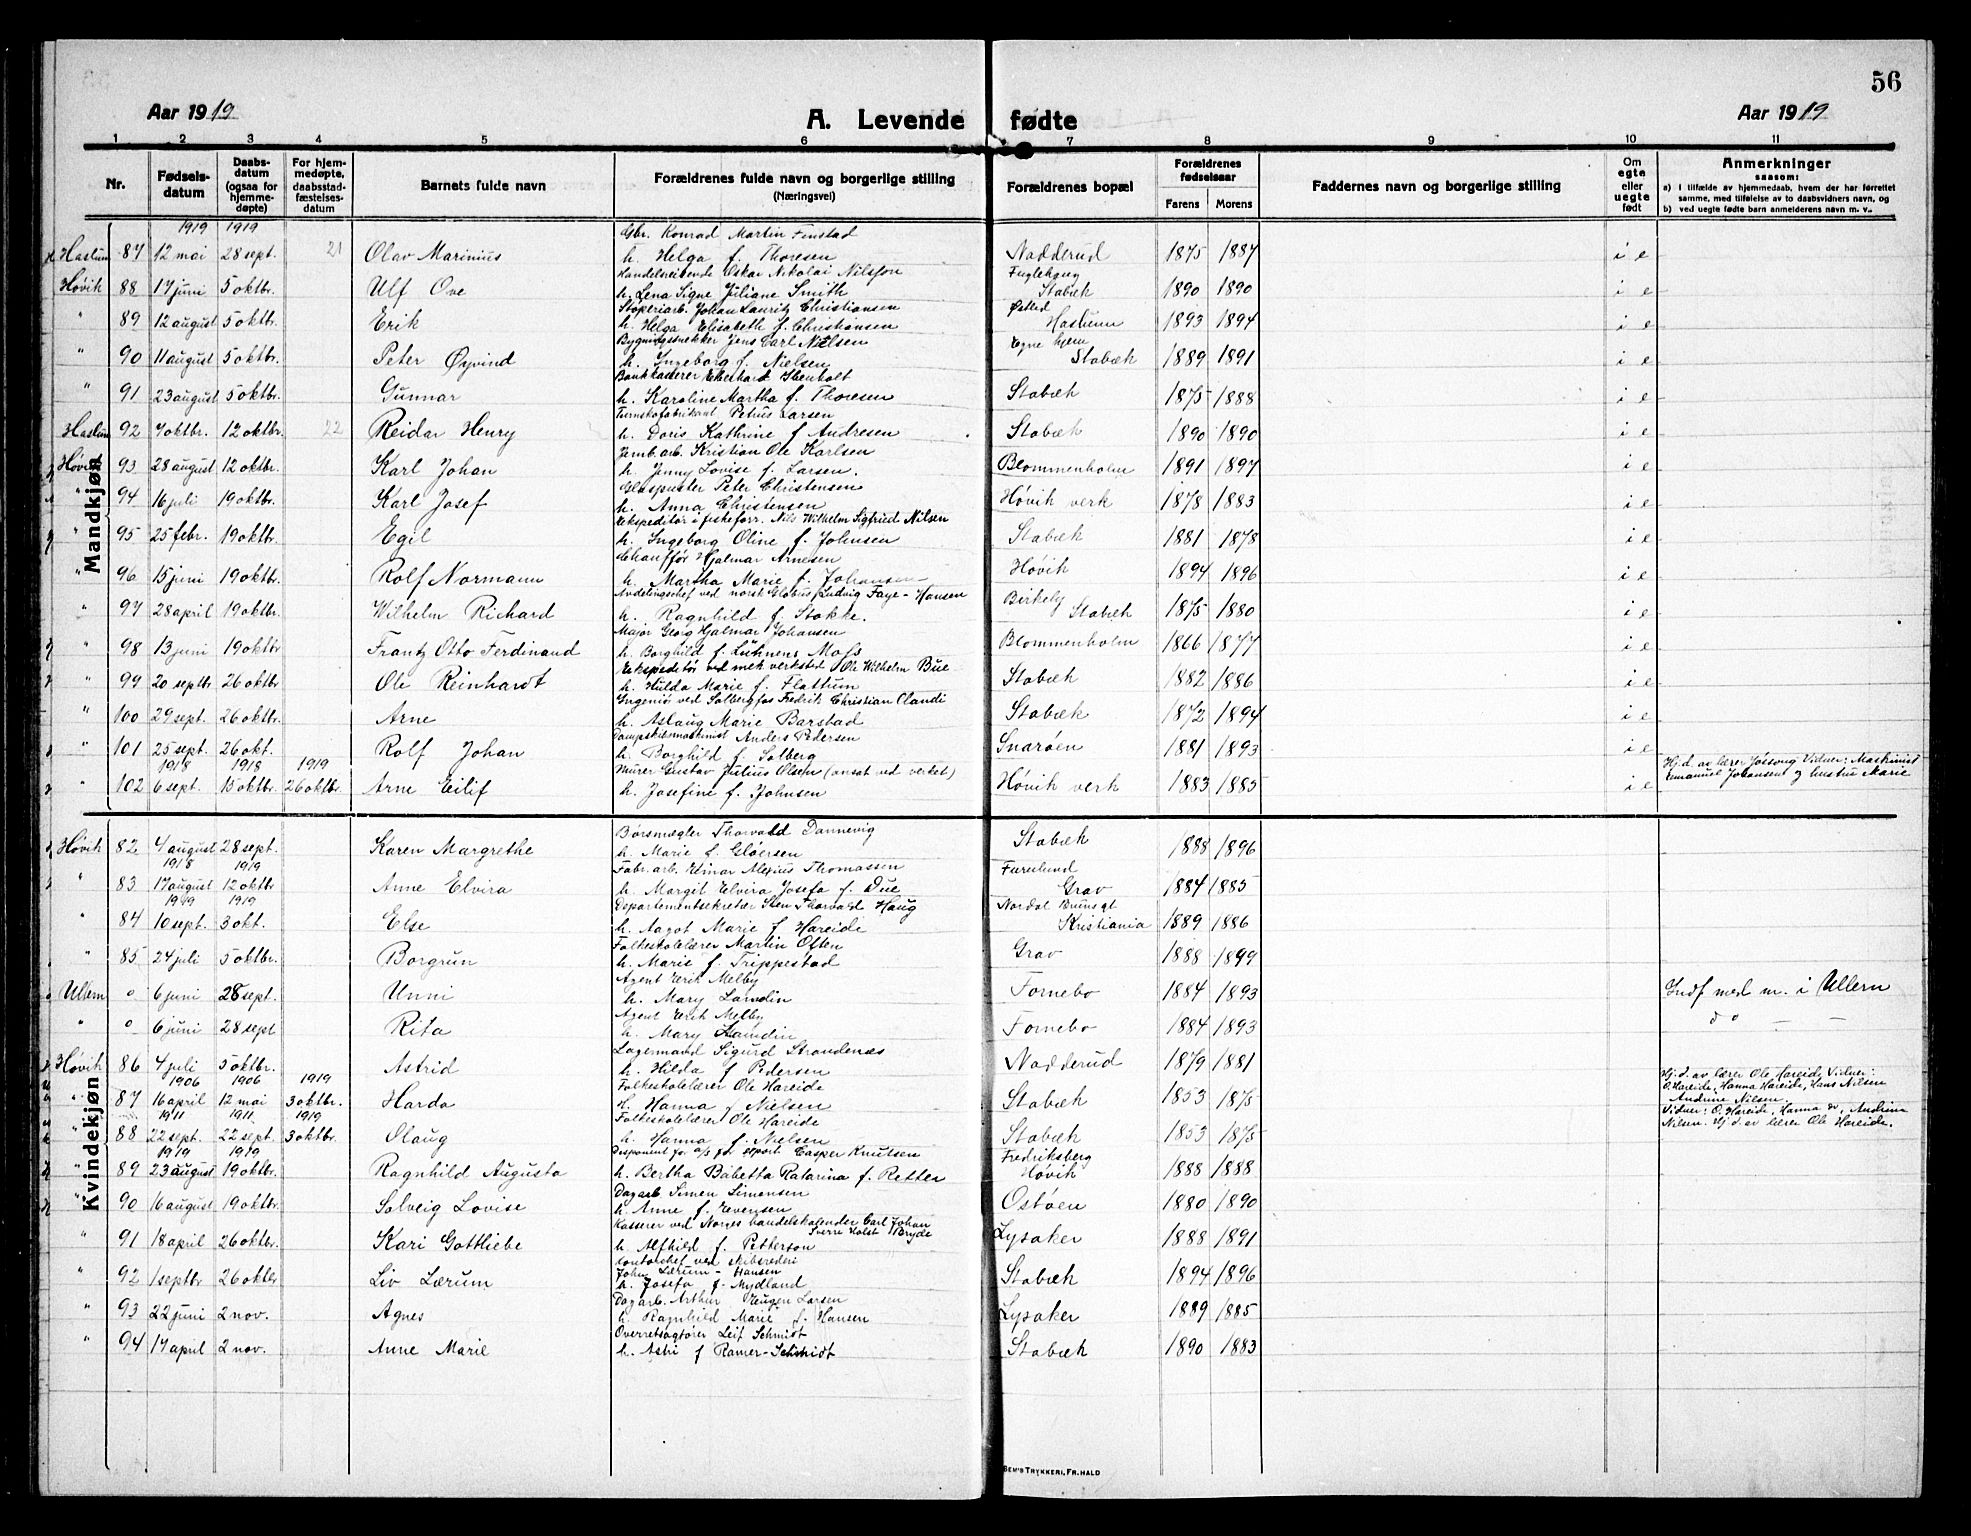 56
Aar 1919 A. Levende fødte Aar 1919
1 2 3 4 5 6 7 8 9 10 11
Nr. Fødsels-datum Daabs-datum (ogsaa for hjemme-døpte) For hjem-medøpte, daabsstad-fæstelses-datum Barnets fulde navn Forældrenes fulde navn og borgerlige stilling (Næringsvei) Forældrenes bopæl Forældrenes fødselsaar Farens Morens Faddernes navn og borgerlige stilling Om egte eller uegte født Anmerkninger saasom: a) I tilfælde av hjemmedaab, hvem der har forrettet samme, med tilføielse av to daabsvidners navn, og b) ved uegte fødte barn anmelderens navn m. v.
Mandkjøn
1919 1919 Gbr. Konrad Martin Finstad
Haslum 87 12 mai 28 sept. 21 Olav Marinius h. Helga f. Thoresen Nadderud 1875 1887 i e
Handelsreisende Oskar Nikolai Nilsson Fuglehaug
Høvik 88 17 juni 5 oktbr. Ulf Ove h. Lena Signe Juliane Smith Stabæk 1890 1890 i e
Støperiarb. Johan Lauritz Christiansen
" 89 12 august 5 oktbr. Erik h. Helga Elisabeth f. Christiansen Haslum 1893 1894 i e
Bygningssnekker Jens Carl Nielsen Egne hjem
" 90 11 august 5 oktbr. Peter Øyvind h. Ingeborg f. Nielsen Stabæk 1889 1891 i e
Bankkaserer Eberhard Stenholt
" 91 23 august 5 oktbr. Gunnar h. Karoline Martha f. Thoresen Stabæk 1875 1888 i e
Turnskofabrikant Petrus Larsen
Haslum 92 7 oktbr. 12 oktbr. 22 Reidar Henry h. Doris Kathrine f. Andresen Stabæk 1890 1890 i e
Jernb.arb. Kristian Ole Karlsen
Høvik 93 28 august 12 oktbr. Karl Johan h. Jenny Lovise f. Larsen. Blommenholm 1891 1897 i e
Glaspuster Peter Christensen
" 94 16 juli 19 oktbr. Karl Josef h. Anna Christensen Høvik verk 1878 1883 i e
Ekspeditør i fiskeforr. Nils Wilhelm Sigfried Nilsen
" 95 25 febr. 19 oktbr. Egil h. Ingeborg Oline f. Johnsen Stabæk 1881 1878 i e
Chauffør Hjalmar Arnesen
" 96 15 juni 19 oktbr. Rolf Normann h. Martha Marie f. Johansen Høvik 1894 1896 i e
Avdelingschef ved norsk Globus Ludvig Faye-Hansen Birkely
" 97 28 april 19 oktbr. Wilhelm Richard h. Ragnhild f. Stokke. Stabæk 1875 1880 i e
Major Georg Hjalmar Johansen
" 98 13 juni 19 oktbr. Frantz Otto Ferdinand h. Borghild f. Lühnens Moss Blommenholm 1866 1877 i e
Ekspeditør ved mek verksted Ole Wilhelm Bue
" 99 20 septbr 26 oktbr Ole Reinhardt h. Hulda Marie f. Flattum Stabæk 1882 1886 i e
Ingeniør ved Solbergfos Fredrik Christian Claudi
" 100 29 sept. 26 oktbr. Arne h. Aslaug Marie Barstad Stabæk 1872 1894 i e
Dampskibsmaskinist Anders Pedersen
" 101 25 sept. 26 okt. Rolf Johan h. Borghild f. Solberg Snarøen 1881 1893 i e
1918 1918 1919 Murer Gustav Julius Olsen (ansat ved verket) Hj.d. av lærer Jossvig Vidner: Maskinist
" 102 6 sept. 15 oktbr. 26 oktbr. Arne Eilif h. Josefine f. Johnsen Høvik verk 1883 1885 i e Emanuel Johansen og hustru Marie
Kvindekjøn
Børsmægler Thorvald Dannevig
Høvik 82 4 august 28 sept. Karen Margrethe h. Marie f. Gløersen Stabæk 1888 1896
1918 1919 Fabr.arb. Einar Alexius Thomassen Furulund
" 83 17 august 12 oktbr Anne Elvira h. Margit Elvira Josefa f. Due Grav 1884 1885
1919 1919 Departementsekretær Sten Thorvald Haug Nordal Brunsgt
" 84 10 sept. 3 okt. Else h. Aagot Marie f Hareide Kristiania 1889 1886
Folkeskolelærer Martin Often
" 85 24 juli 5 oktbr. Borgrun h. Marie f. Trippestad Grav 1888 1899
Agent Erik Melby
Ullern o 6 juni 28 sept. Unni h. Mary Lamdin Fornebo 1884 1893 Indf med m. i Ullern
Agent Erik Melby
" o 6 juni 28 sept Rita h. Mary Lamdin Fornebo 1884 1893 do — —
Lagermand Sigurd Strandenæs
Høvik 86 4 juli 5 oktbr. Astrid h. Hilda f Pedersen Nadderud 1879 1881
1906 1906 1919 Folkeskolelærer Ole Hareide Hj.d. av lærer Ole Hareide Vidner:
" 87 16 april 12 mai 3 oktbr. Harda H. Hanna f Nielsen Stabæk 1853 1875 O. Hareide, Hanna Hareide, Hans Nilsen Andrine Nilsen.
1911 1911 1919 Folkeskolelærer Ole Hareide Vidner: O. Hareide, Hanna do, Andrine
" 88 22 sept. 22 sept. 3 oktbr. Olaug h. Hanna f. Nielsen Stabæk 1853 1875 Nilsen. Hj d. av lærer Ole Hareide.
1919 1919 Disponent for a/s for export Casper Knutsen Fredriksberg
" 89 23 august 19 oktbr. Ragnhild Augusta h. Bertha Babetta Katarina f. Retter Høvik 1888 1888
Dagarb. Simen Simensen
" 90 16 august 19 oktbr. Solveig Lovise h. Anne f. Evensen Ostøen 1880 1890
Kasserer ved Norges handelskalender Carl Johan Sverre Holst Bryde
" 91 18 april 26 oktbr. Kari Gottliebe h. Alfhild f. Petterson Lysaker 1888 1891
Kontorchef ved skibsrederi John Lærum-Hansen
" 92 1 septbr 26 oktbr Liv Lærum h. Josefa f. Mydland Stabæk 1894 1896
Dagarb. Arthur Eugen Larsen
" 93 22 juni 2 nov. Agnes h. Ragnhild Marie f. Hansen Lysaker 1889 1885
Overretssagfører Leif Schmidt
" 94 17 april 2 nov. Anne Marie h. Astri f Ramer-Schmidt Stabæk 1890 1883
BEM'S TRYKKERI, FR.HALD